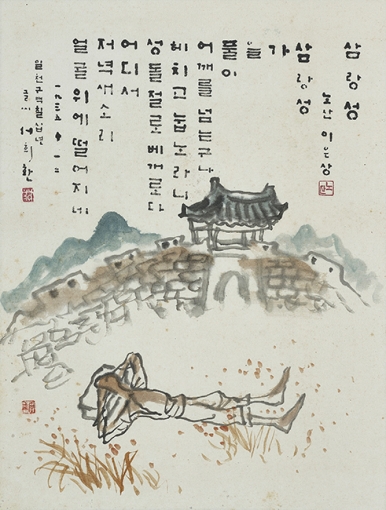 삼랑성
노산 이은상
삼랑성
가
을
풀이
어깨를 넘는구나
헤치고 눕노라니
성돌 절로 베개로다
어디서
저녁 새소리
얼굴 위에 떨어지네
일천구백칠십년
서희환